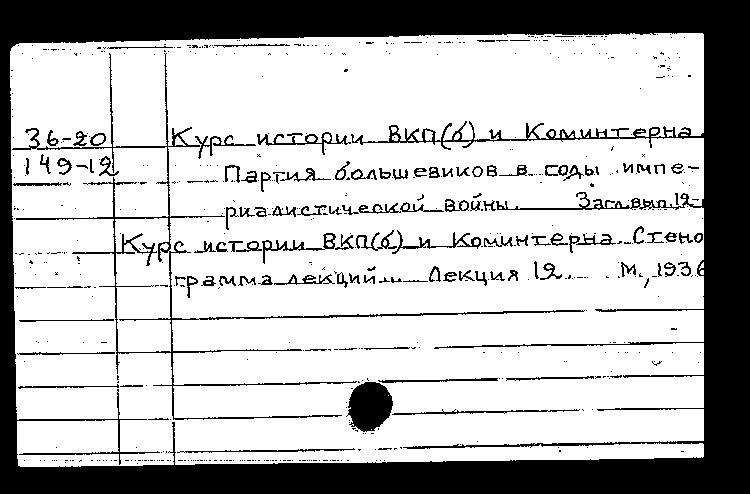 36-20 Курс истории ВКП(б) и Коминтерна.
149-12 Партия большевиков в годы импе-
риалистической войны. Загл. вып. 12-
Курс истории ВКП(б) и Коминтерна. Стено
грамма лекций... Лекция 12. М., 1936